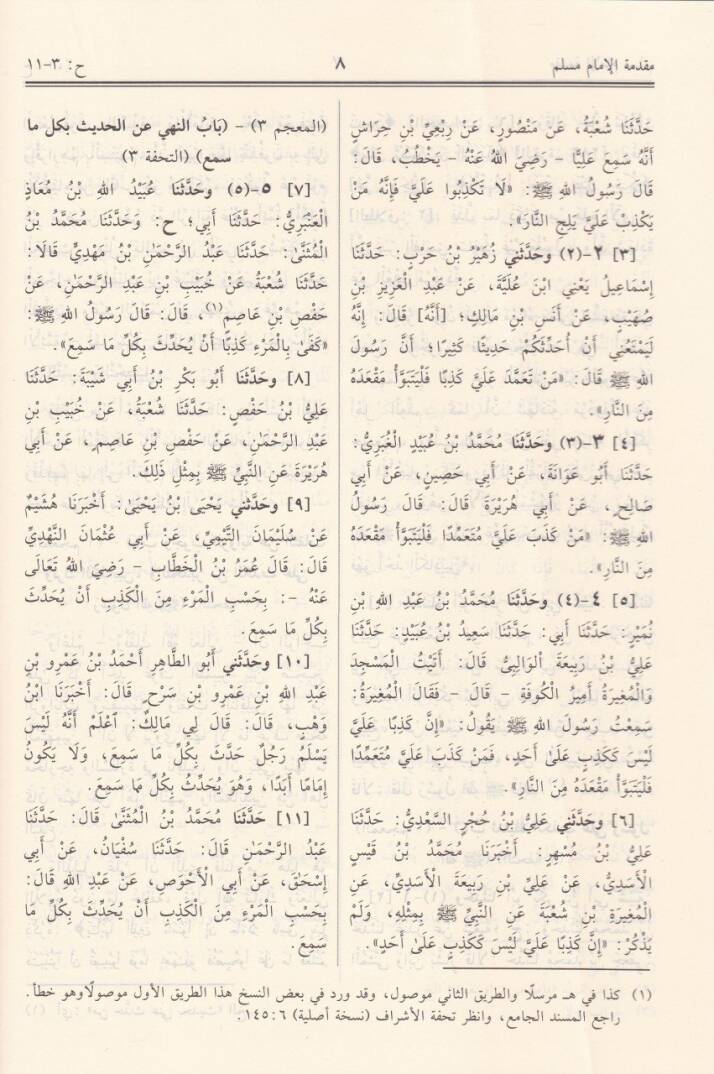 مقدمة الإمام مسلم
٨
ح: ٣-١١
حَدَّثَنَا شُعْبَةُ، عَنْ مَنْصُورٍ، عَنْ رِبْعِيِّ بْنِ حِرَاشٍ
أَنَّهُ سَمِعَ عَلِيًّا - رَضِيَ اللهُ عَنْهُ - يَخْطُبُ، قَالَ:
قَالَ رَسُولُ اللهِ ﷺ: «لَا تَكْذِبُوا عَلَيَّ فَإِنَّهُ مَنْ
يَكْذِبْ عَلَيَّ يَلِجِ النَّارَ».
[٣] ٢-(٢) وحَدَّثَنِي زُهَيْرُ بْنُ حَرْبٍ: حَدَّثَنَا
إِسْمَاعِيلُ يَعْنِي ابْنَ عُلَيَّةَ، عَنْ عَبْدِ الْعَزِيزِ بْنِ
صُهَيْبٍ، عَنْ أَنَسِ بْنِ مَالِكٍ؛ [أَنَّهُ] قَالَ: إِنَّهُ
لَيَمْنَعُنِي أَنْ أُحَدِّثَكُمْ حَدِيثًا كَثِيرًا؛ أَنَّ رَسُولَ
اللهِ ﷺ قَالَ: «مَنْ تَعَمَّدَ عَلَيَّ كَذِبًا فَلْيَتَبَوَّأْ مَقْعَدَهُ
مِنَ النَّارِ».
[٤] ٣-(٣) وحَدَّثَنَا مُحَمَّدُ بْنُ عُبَيْدٍ الْغُبَرِيُّ:
حَدَّثَنَا أَبُو عَوَانَةَ، عَنْ أَبِي حَصِينٍ، عَنْ أَبِي
صَالِحٍ، عَنْ أَبِي هُرَيْرَةَ قَالَ: قَالَ رَسُولُ
اللهِ ﷺ: «مَنْ كَذَبَ عَلَيَّ مُتَعَمِّدًا فَلْيَتَبَوَّأْ مَقْعَدَهُ
مِنَ النَّارِ».
[٥] ٤-(٤) وحَدَّثَنَا مُحَمَّدُ بْنُ عَبْدِ اللهِ بْنِ
نُمَيْرٍ: حَدَّثَنَا أَبِي: حَدَّثَنَا سَعِيدُ بْنُ عُبَيْدٍ: حَدَّثَنَا
عَلِيُّ بْنُ رَبِيعَةَ الْوَالِبِيُّ قَالَ: أَتَيْتُ الْمَسْجِدَ
وَالْمُغِيرَةُ أَمِيرُ الْكُوفَةِ - قَالَ - فَقَالَ الْمُغِيرَةُ:
سَمِعْتُ رَسُولَ اللهِ ﷺ يَقُولُ: «إِنَّ كَذِبًا عَلَيَّ
لَيْسَ كَكَذِبٍ عَلَى أَحَدٍ، فَمَنْ كَذَبَ عَلَيَّ مُتَعَمِّدًا
فَلْيَتَبَوَّأْ مَقْعَدَهُ مِنَ النَّارِ».
[٦] وحَدَّثَنِي عَلِيُّ بْنُ حُجْرٍ السَّعْدِيُّ: حَدَّثَنَا
عَلِيُّ بْنُ مُسْهِرٍ: أَخْبَرَنَا مُحَمَّدُ بْنُ قَيْسٍ
الْأَسَدِيُّ، عَنْ عَلِيِّ بْنِ رَبِيعَةَ الْأَسَدِيِّ، عَنِ
الْمُغِيرَةِ بْنِ شُعْبَةَ عَنِ النَّبِيِّ ﷺ بِمِثْلِهِ، وَلَمْ
يَذْكُرْ: «إِنَّ كَذِبًا عَلَيَّ لَيْسَ كَكَذِبٍ عَلَى أَحَدٍ».
(المعجم ٣) - (بَابُ النهي عن الحديث بكل ما
سمع) (التحفة ٣)
[٧] ٥-(٥) وحَدَّثَنَا عُبَيْدُ اللهِ بْنُ مُعَاذٍ
الْعَنْبَرِيُّ: حَدَّثَنَا أَبِي؛ ح: وَحَدَّثَنَا مُحَمَّدُ بْنُ
الْمُثَنَّى: حَدَّثَنَا عَبْدُ الرَّحْمَنِ بْنُ مَهْدِيٍّ قَالَا:
حَدَّثَنَا شُعْبَةُ عَنْ خُبَيْبِ بْنِ عَبْدِ الرَّحْمَنِ، عَنْ
حَفْصِ بْنِ عَاصِمٍ(١)، قَالَ: قَالَ رَسُولُ اللهِ ﷺ:
«كَفَى بِالْمَرْءِ كَذِبًا أَنْ يُحَدِّثَ بِكُلِّ مَا سَمِعَ».
[٨] وحَدَّثَنَا أَبُو بَكْرِ بْنُ أَبِي شَيْبَةَ: حَدَّثَنَا
عَلِيُّ بْنُ حَفْصٍ: حَدَّثَنَا شُعْبَةُ، عَنْ خُبَيْبِ بْنِ
عَبْدِ الرَّحْمَنِ، عَنْ حَفْصِ بْنِ عَاصِمٍ، عَنْ أَبِي
هُرَيْرَةَ عَنِ النَّبِيِّ ﷺ بِمِثْلِ ذَلِكَ.
[٩] وحَدَّثَنِي يَحْيَى بْنُ يَحْيَى: أَخْبَرَنَا هُشَيْمٌ
عَنْ سُلَيْمَانَ التَّيْمِيِّ، عَنْ أَبِي عُثْمَانَ النَّهْدِيِّ
قَالَ: قَالَ عُمَرُ بْنُ الْخَطَّابِ - رَضِيَ اللهُ تَعَالَى
عَنْهُ -: بِحَسْبِ الْمَرْءِ مِنَ الْكَذِبِ أَنْ يُحَدِّثَ
بِكُلِّ مَا سَمِعَ.
[١٠] وحَدَّثَنِي أَبُو الطَّاهِرِ أَحْمَدُ بْنُ عَمْرِو بْنِ
عَبْدِ اللهِ بْنِ عَمْرِو بْنِ سَرْحٍ قَالَ: أَخْبَرَنَا ابْنُ
وَهْبٍ، قَالَ: قَالَ لِي مَالِكٌ: اعْلَمْ أَنَّهُ لَيْسَ
يَسْلَمُ رَجُلٌ حَدَّثَ بِكُلِّ مَا سَمِعَ، وَلَا يَكُونُ
إِمَامًا أَبَدًا، وَهُوَ يُحَدِّثُ بِكُلِّ مَا سَمِعَ.
[١١] حَدَّثَنَا مُحَمَّدُ بْنُ الْمُثَنَّى قَالَ: حَدَّثَنَا
عَبْدُ الرَّحْمَنِ قَالَ: حَدَّثَنَا سُفْيَانُ، عَنْ أَبِي
إِسْحَقَ، عَنْ أَبِي الْأَحْوَصِ، عَنْ عَبْدِ اللهِ قَالَ:
بِحَسْبِ الْمَرْءِ مِنَ الْكَذِبِ أَنْ يُحَدِّثَ بِكُلِّ مَا
سَمِعَ.
(١) كذا في هـ مرسلًا والطريق الثاني موصول، وقد ورد في بعض النسخ هذا الطريق الأول موصولًا وهو خطأ.
راجع المسند الجامع، وانظر تحفة الأشراف (نسخة أصلية) ٦: ١٤٥.